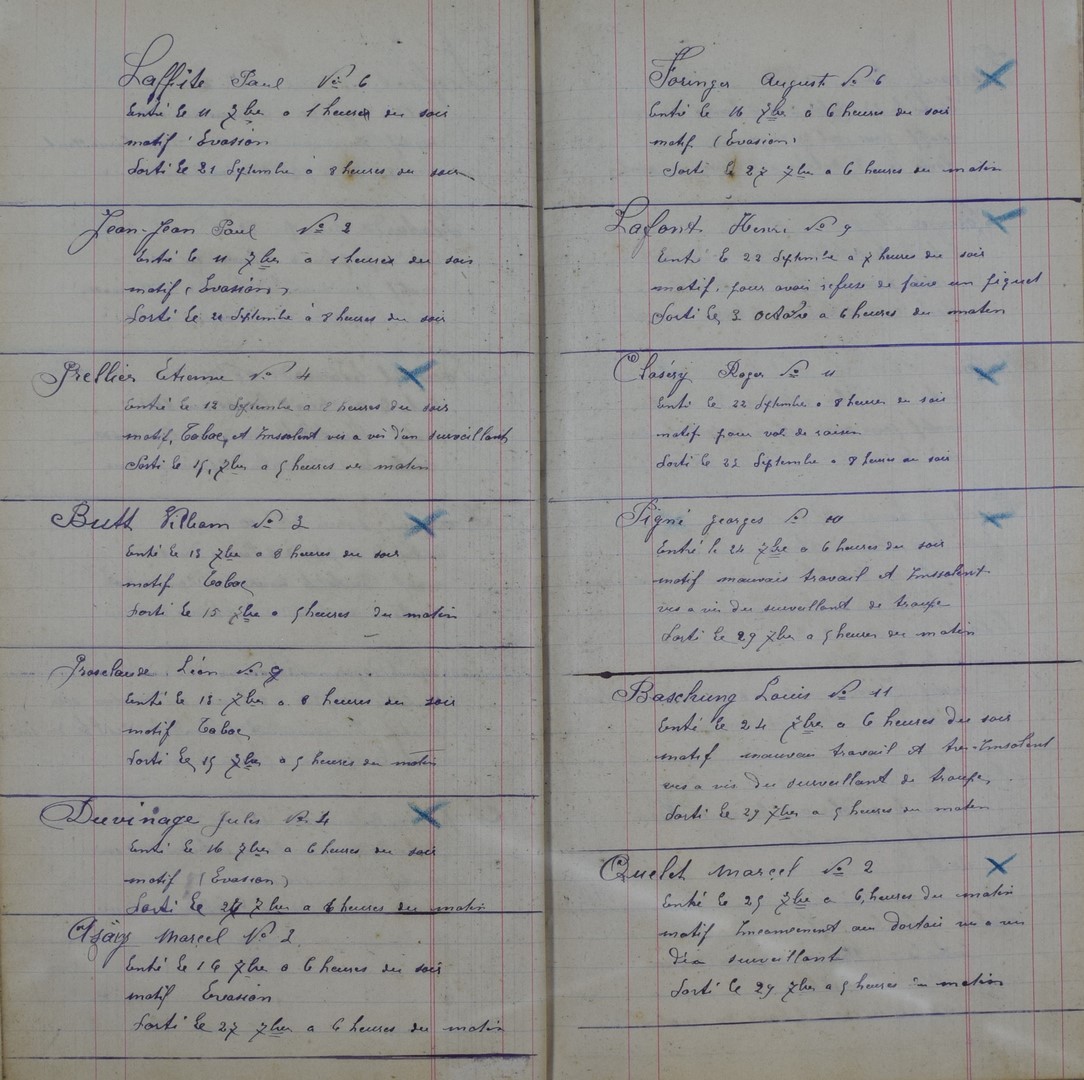 Laffite Paul No 6
Entré le 11 7bre a 1 heures du soir
motif Evasion
Sorti le 21 Septembre à 8 heures du soir
Jean-Jean Paul No 2
Entré le 11 7bre à 1 heures du soir
motif (Evasion)
Sorti le Septembre à 8 heures du soir
Prellier Etienne No 4
Entré le 12 Septembre a 8 heures du soir
motif, Tabac, et Inssolent vis a vis d'un surveillant
Sorti le 15, 7bre a 5 heures du matin
Butt William No 3
Entré le 13 7bre a 8 heures du soir
motif Tabac
Sorti le 15 7bre a 5 heures du matin
Léon No 9
Entré le 13 7bre a 8 heures du soir
motif Tabac
Sorti le 15 7bre a 5 heures du matin
Duvinage Jules No 4
Entré le 16 7bre a 6 heures du soir
motif (Evasion)
Sorti le 7bre a 6 heures du matin
Marcel No 2
Entré le 16 7bre a 6 heures du soir
motif Evasion
Sorti le 27 7bre a 6 heures du matin
Foringer Auguste No 6
Entré le 16 7bre à 6 heures du soir
motif (Evasion)
Sorti le 27 7bre a 6 heures du matin
Lafont Henri No 9
Entré le 22 Septembre à 7 heures du soir
motif, pour avoir refuse de faire un piquet
Sorti le 3 octobre a 6 heures du matin
Roger No 11
Entré le 22 Septembre a 8 heures du soir
motif pour vol de raisin
Sorti le Septembre a 8 heures au soir
Pigné georges No 10
Entré le 24 7bre a 6 heures du soir
motif mauvais travail et Inssolent
vis a vis du surveillant de troupe
Sorti le 29 7bre a 5 heures du matin
Baschung Louis No 11
Entré le 24 7bre a 6 heures du soir
motif mauvais travail et tres-Inssolent
vis a vis du surveillant de troupe,
Sorti le 29 7bre a 5 heures du matin
Quelet Marcel No 2
Entré le 25 7bre a 6 heures du matin
motif au dortoir vis a vis
surveillant
Sorti le 29 7bre a 5 heures du matin